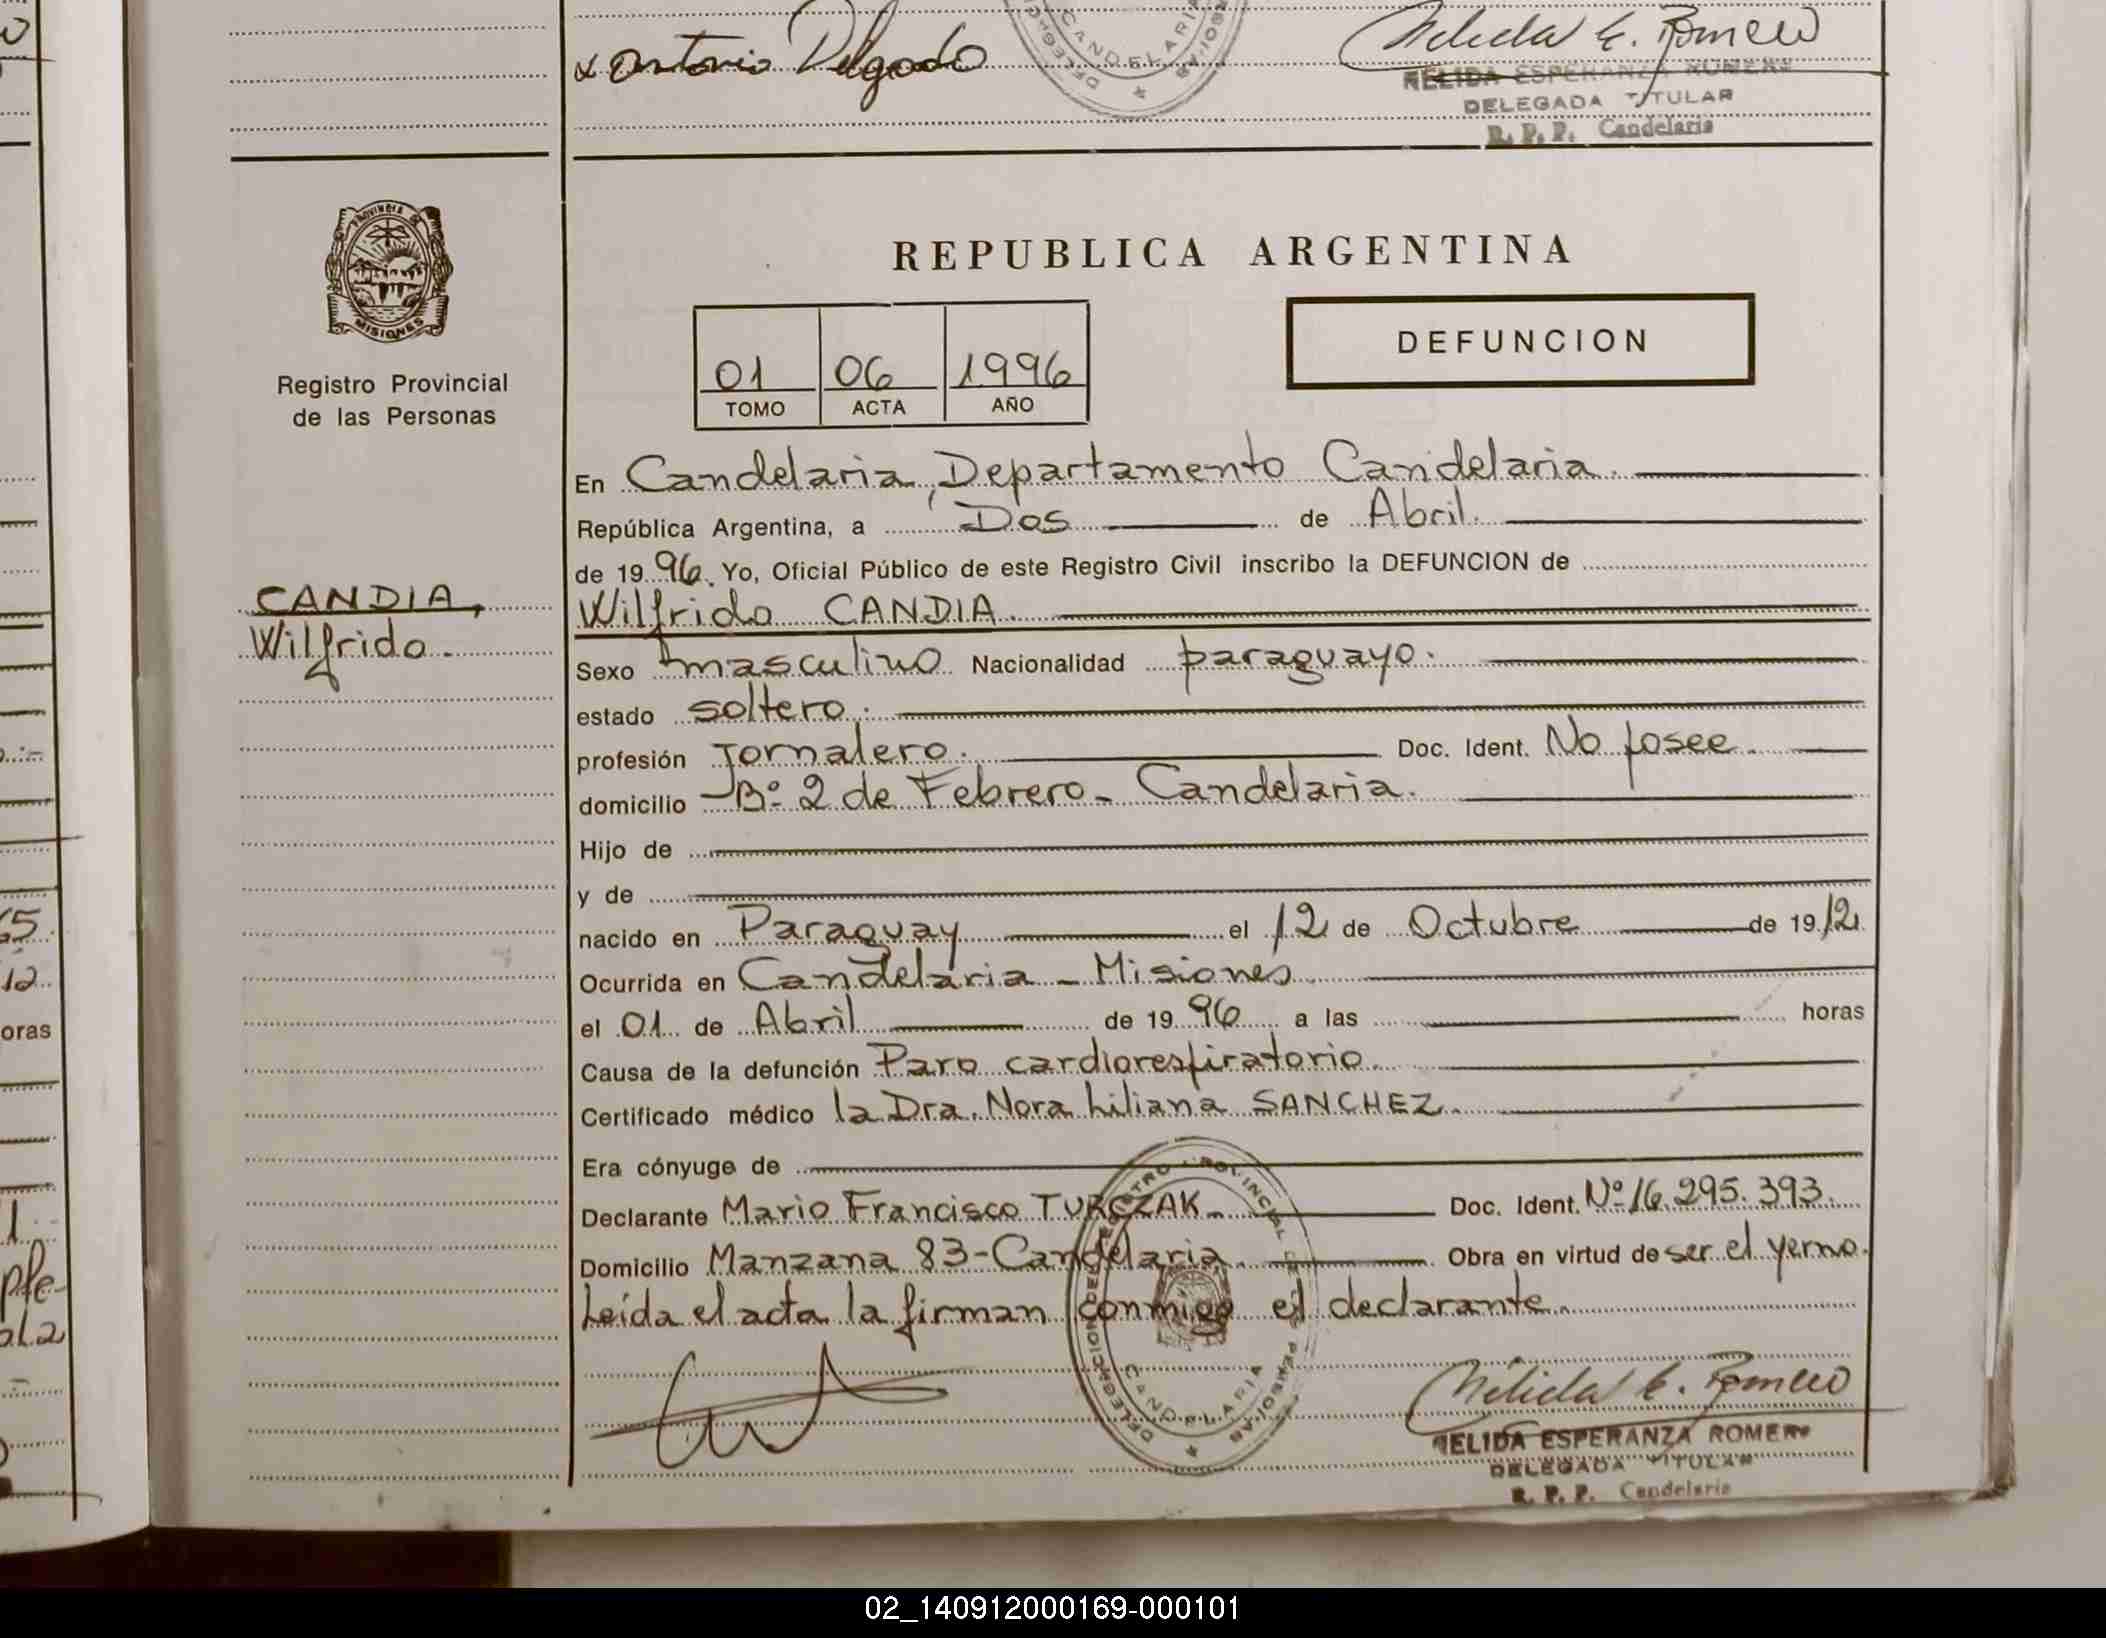 Antonio Delgado
Nelida E. Romero
CANDELARIA
NELIDA ESPERANZA ROMERO
DELEGADA TITULAR
R. P. P. Candelaria
PROVINCIA DE
MISIONES
Registro Provincial
de las Personas
CANDIA,
Wilfrido.
REPUBLICA ARGENTINA
01 06 1996
TOMO ACTA AÑO
DEFUNCION
En Candelaria, Departamento Candelaria.
República Argentina, a Dos de Abril.
de 1996. Yo, Oficial Público de este Registro Civil inscribo la DEFUNCION de
Wilfrido CANDIA.
Sexo masculino Nacionalidad paraguayo.
estado soltero.
profesión Jornalero. Doc. Ident. No posee.
domicilio Bº 2 de Febrero - Candelaria.
Hijo de
y de
nacido en Paraguay el 12 de Octubre de 1912.
Ocurrida en Candelaria - Misiones
el 01 de Abril de 1996 a las horas
Causa de la defunción Paro cardiorespiratorio.
Certificado médico la Dra. Nora Liliana SANCHEZ.
Era cónyuge de
Declarante Mario Francisco TURCZAK. Doc. Ident. Nº 16.295.393.
Domicilio Manzana 83-Candelaria. Obra en virtud de ser el yerno.
Leída el acta la firman conmigo el declarante.
CANDELARIA
Nelida E. Romero
NELIDA ESPERANZA ROMERO
DELEGADA TITULAR
R. P. P. Candelaria
02_140912000169-000101